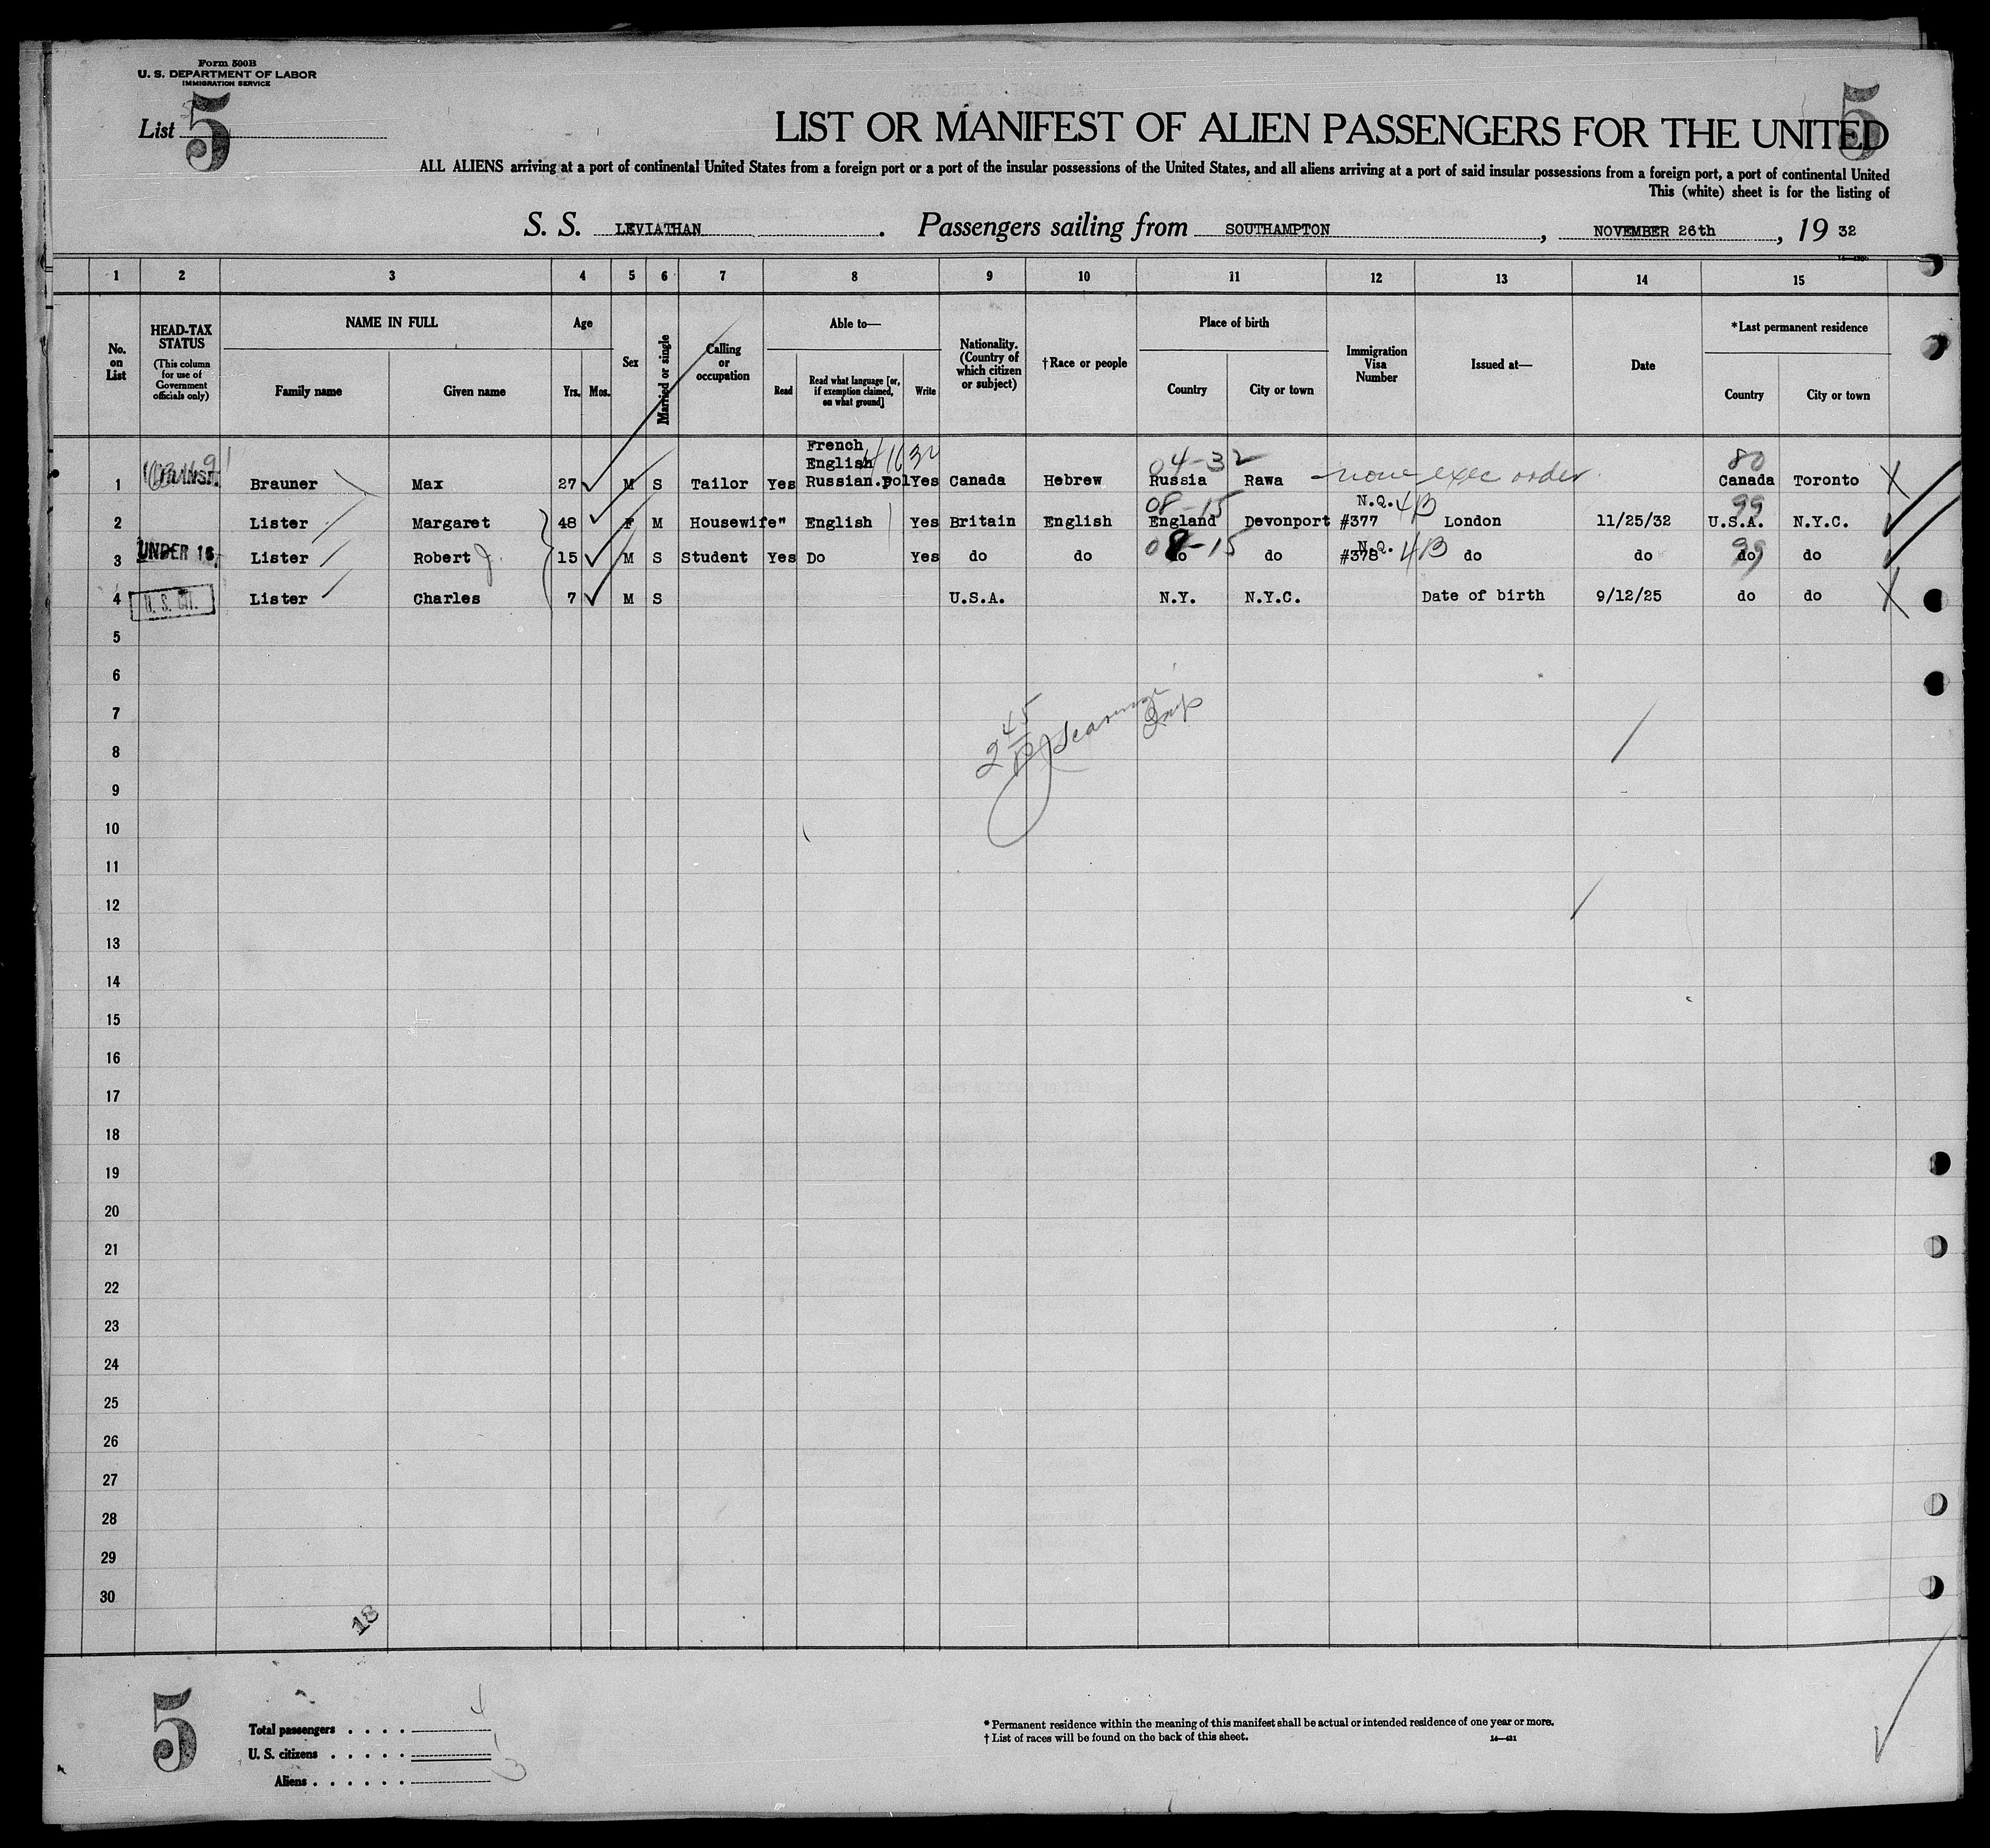 Form 500B
U. S. DEPARTMENT OF LABOR
IMMIGRATION SERVICE
List 5
5
LIST OR MANIFEST OF ALIEN PASSENGERS FOR THE UNITED
ALL ALIENS arriving at a port of continental United States from a foreign port or a port of the insular possessions of the United States, and all aliens arriving at a port of said insular possessions from a foreign port, a port of continental United
This (white) sheet is for the listing of
S. S. LEVIATHAN. Passengers sailing from SOUTHAMPTON, NOVEMBER 26th, 19 32
1 2 3 4 5 6 7 8 9 10 11 12 13 14 15
No. on List
HEAD-TAX STATUS
(This column for use of Government officials only)
NAME IN FULL
Family name Given name
Age
Yrs. Mos.
Sex
Married or single
Calling or occupation
Able to—
Read
Read what language [or, if exemption claimed, on what ground]
Write
Nationality. (Country of which citizen or subject)
†Race or people
Place of birth
Country City or town
Immigration Visa Number
Issued at—
Date
*Last permanent residence
Country City or town
French
English
04-32 80
1 Brauner Max 27 M S Tailor Yes Russian.pol Yes Canada Hebrew Russia Rawa none exec order Canada Toronto
08-15 N.Q. 4B 99
2 Lister Margaret 48 F M Housewife" English Yes Britain English England Devonport #377 London 11/25/32 U.S.A. N.Y.C.
08-15 N.Q. 4B 99
3 UNDER 16 Lister Robert J. 15 M S Student Yes Do Yes do do do do #378 do do do do
4 U. S. CIT. Lister Charles 7 M S U.S.A. N.Y. N.Y.C. Date of birth 9/12/25 do do
5
6
7
8
9
10
11
12
13
14
15
16
17
18
19
20
21
22
23
24
25
26
27
28
29
30
18
5
Total passengers . . . . 4
U. S. citizens . . . . . 1
Aliens . . . . . . 3
* Permanent residence within the meaning of this manifest shall be actual or intended residence of one year or more.
† List of races will be found on the back of this sheet.